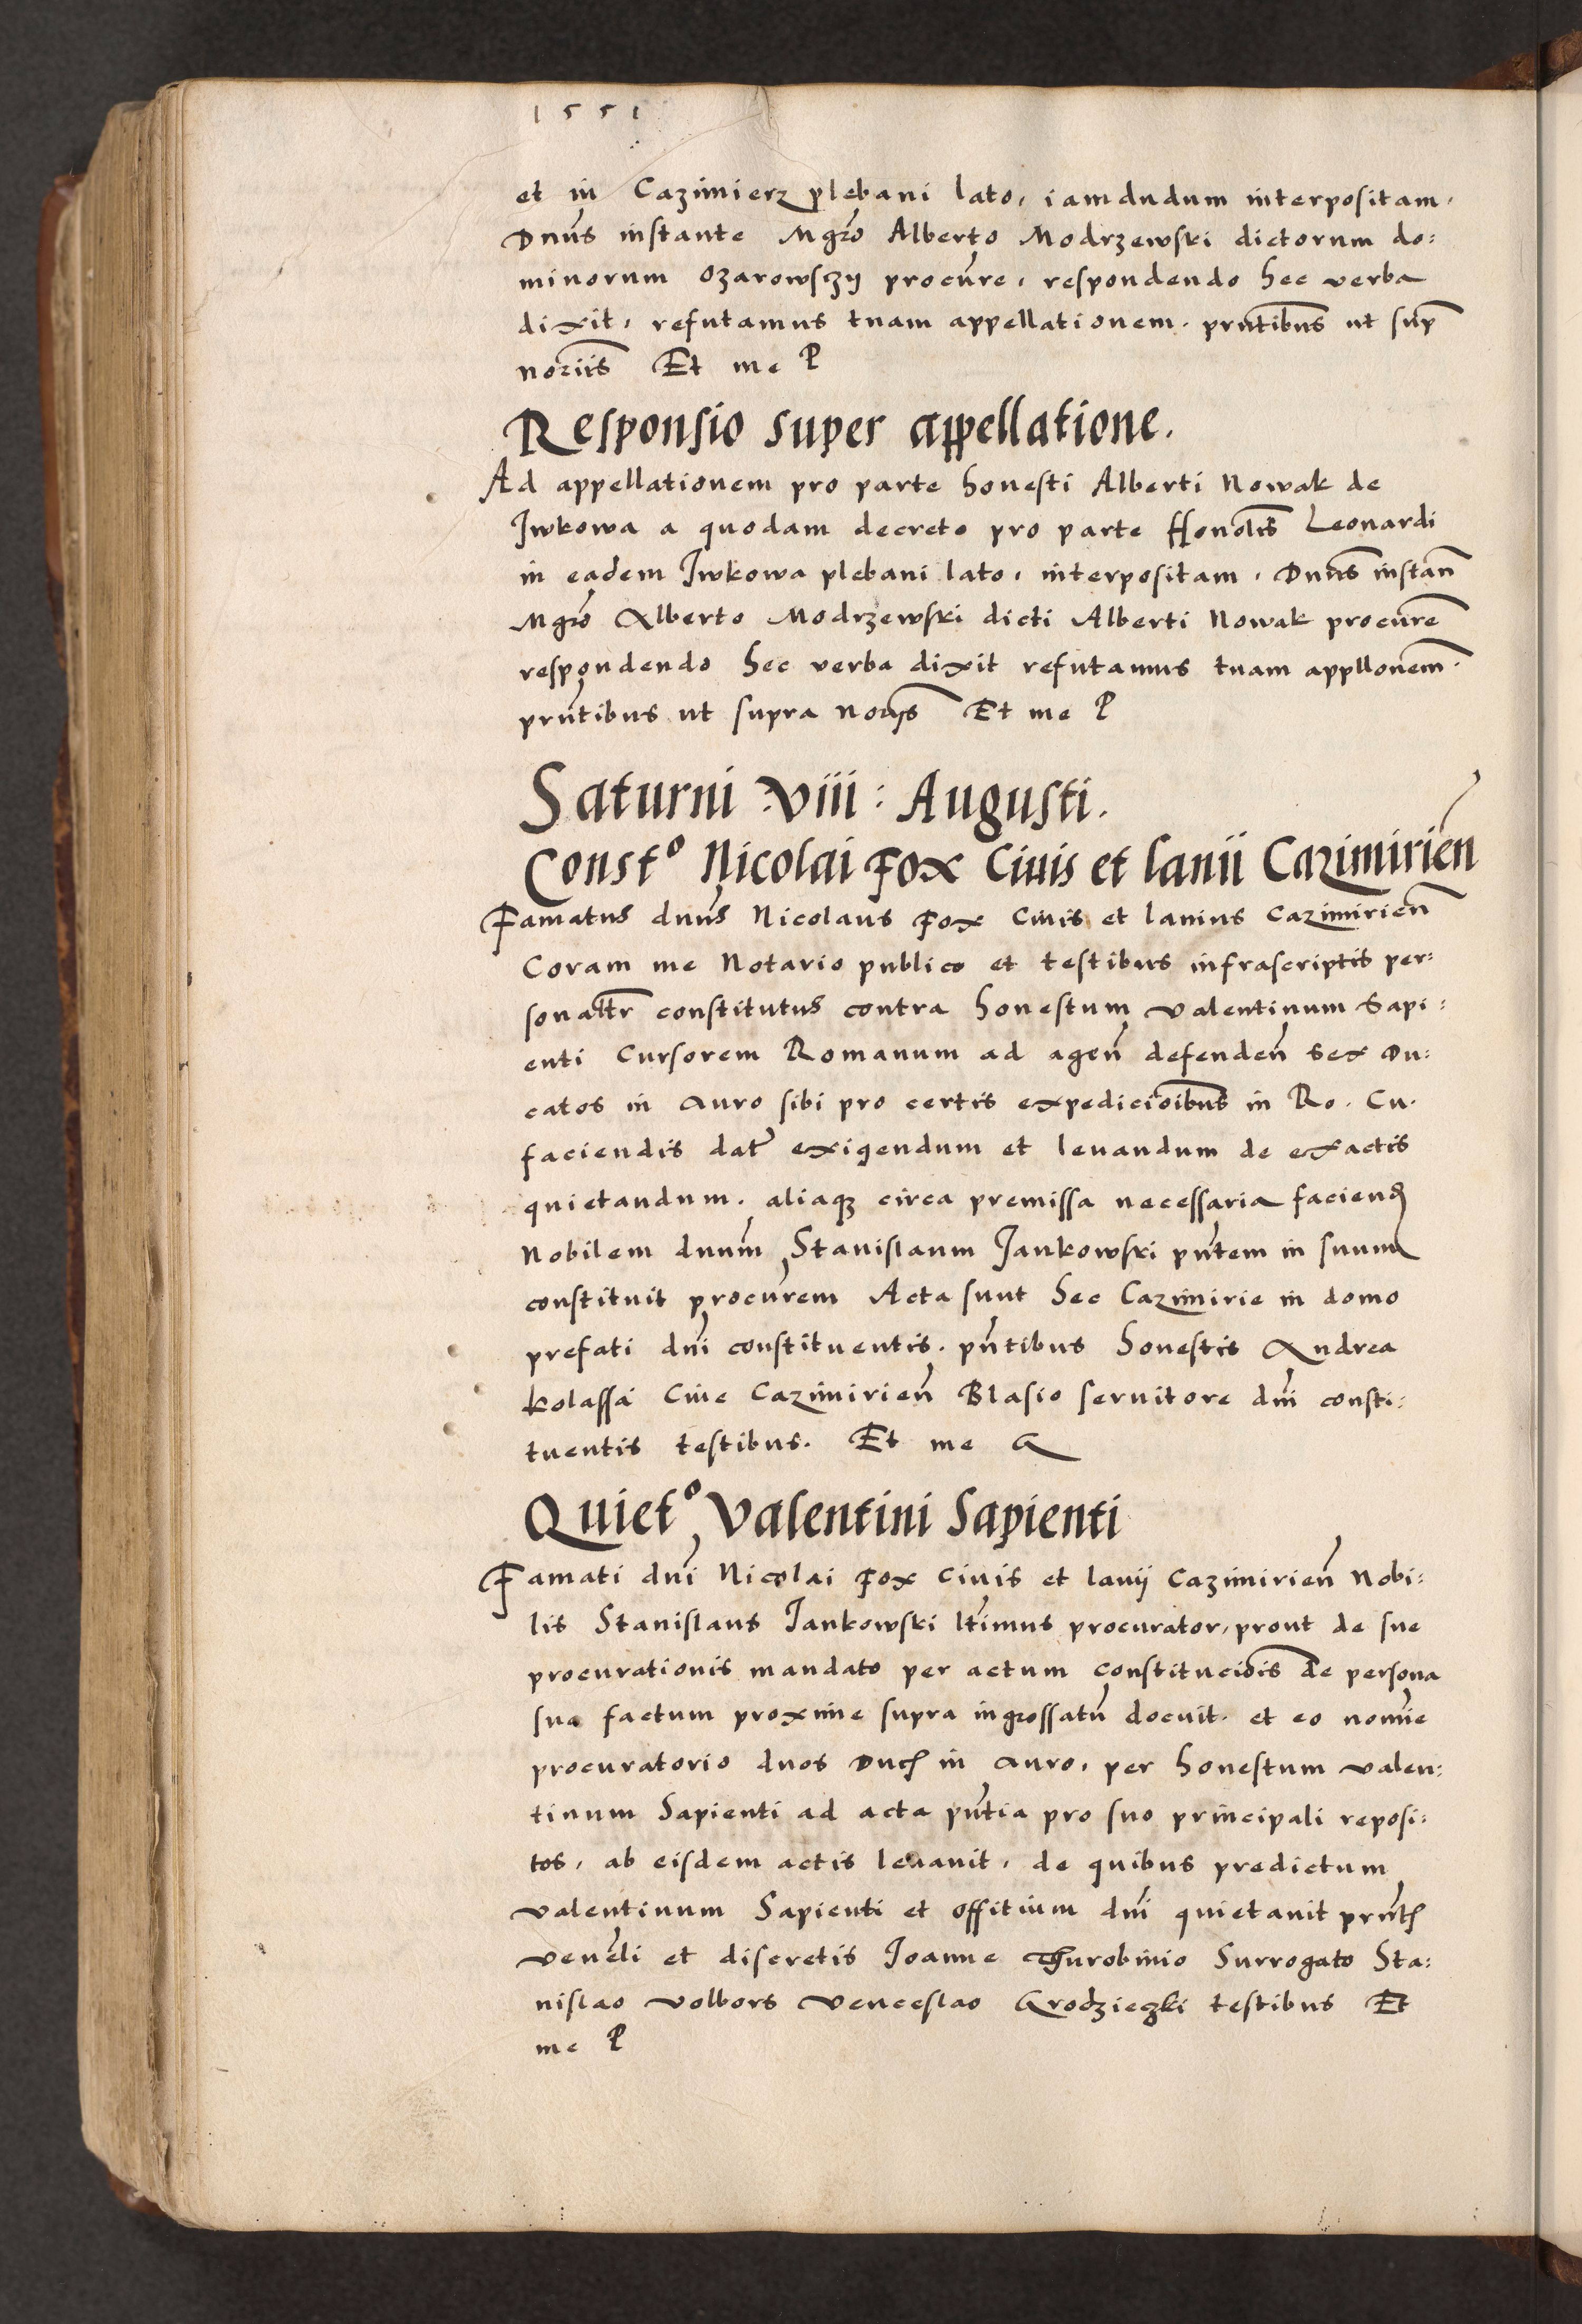 1551
et in Cazimierz plebani lato, iamdudum interpositam,
Dnus instante Mgro Alberto Modrzewski dictorum do:
minorum Ozarowsczy procure, respondendo hec verba
dixit, refutamus tuam appellationem. prntibus ut sup
noriis Et me P
Responsio super appellatione.
Ad appellationem pro parte honesti Alberti Nowak de
Iwkowa a quodam decreto pro parte Honolis Leonardi
in eadem Iwkowa plebani lato, interpositam, Dnus instan
Mgro Alberto Modrzewski dicti Alberti Nowak procure
respondendo hec verba dixit refutamus tuam appllonem.
prntibus ut supra norijs Et me P
Saturni viii: Augusti.
Constº Nicolai Fox Civis et lanii Cazimirien
Famatus dnus Nicolaus Fox Civis et lanius Cazimirien
Coram me Notario publico et testibus infrascriptis per:
sonaltr constitutus contra honestum Valentinum Sapi:
enti Cursorem Romanum ad agen defenden sex Du:
catos in auro sibi pro certis expedicioibus in Ro. Cu.
faciendis dat exigendum et levandum de exactis
quietandum. aliaqz circa premissa necessaria faciend
Nobilem dnum Stanislaum Jankowski pntem in suum
constituit procurem Acta sunt hec Cazimirie in domo
prefati dni constituentis. pntibus honestis Andrea
kolassa Cive Cazimirien Blasio servitore dni consti:
tuentis testibus. Et me G
Quietº Valentini Sapienti
Famati dni Nicolai Fox Civis et lanij Cazimirien Nobi:
lis Stanislaus Jankowski ltimus procurator, prout de sue
procurationis mandato per actum constituciois de persona
sua factum proxime supra ingrossatu docuit. et eo nomie
procuratorio duos Duc in auro, per honestum Valen:
tinum Sapienti ad acta pntia pro suo principali reposi:
tos, ab eisdem actis levavit, de quibus predictum
Valentinum Sapienti et offitium dni quietavit prnt
venerli et discretis Joanne Thurobinio Surrogato Sta:
nislao Volbors Venceslao Grodzieczki testibus Et
me P